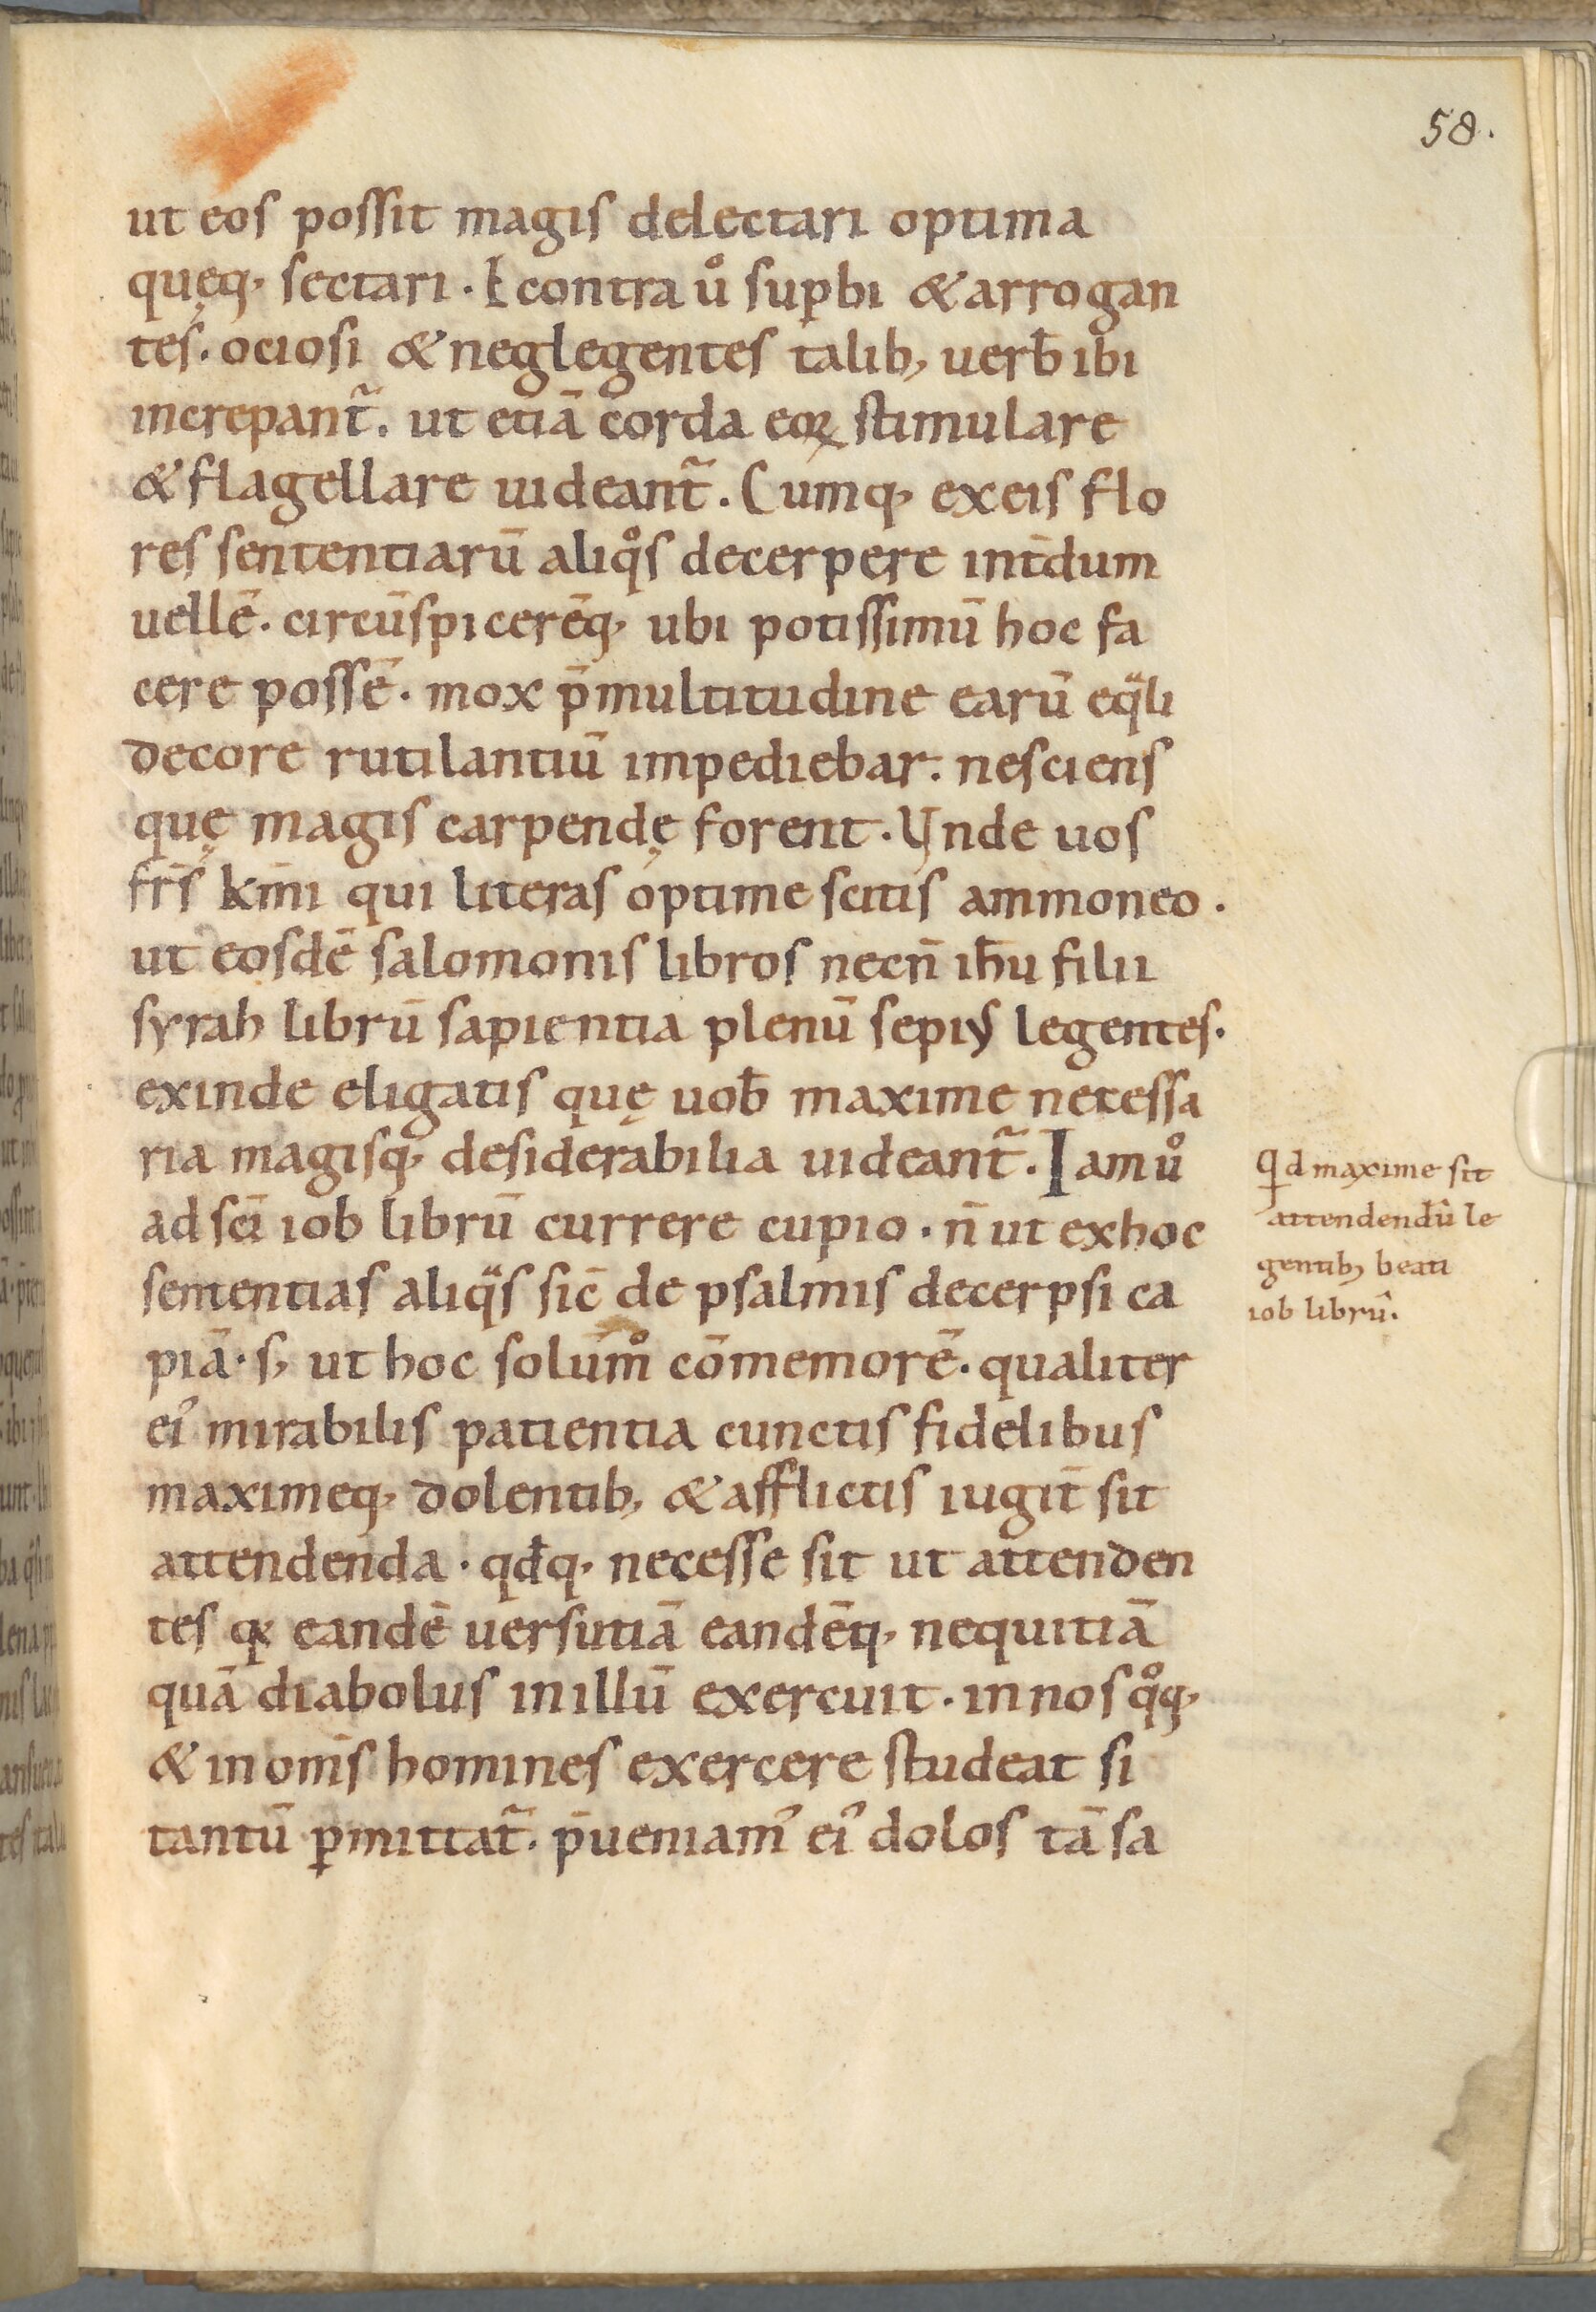 58.
ut eos possit magis delectari optima
quęq; sectari. E contra uͦ sup̱bi & arrogan
tes. ociosi & neglegentes talib; uerƀ ibi
increpant᷑. ut etiā corda eoꝝ stimulare
& flagellare uideant᷑. Cumq; ex eis flo
res sententiarū aliqͦs decerpere int̄dum
uellē. circūspicerēq; ubi potissimū hoc fa
cere possē. mox p̄ multitudine earū eqᷓli
decore rutilantiū impediebar. nesciens
quę magis carpendę forent. Vnde uos
fr̄s km̄i qui literas optime scitis ammoneo.
ut eosdē salomonis libros necn̄ ih̄u filii
syrah librū sapientia plenū sepiꝰ legentes.
exinde eligatis quę uoƀ maxime necessa
ria magisq; desiderabilia uideant᷑. Iam uͦ
ad sc̄i iob librū currere cupio. n̄ ut ex hoc
sententias aliqᷓs sic̄ de psalmis decerpsi ca
piā. s; ut hoc solūmͦ cōmemorē. qualiter
eiꝰ mirabilis patientia cunctis fidelibus
maximeq; dolentib; & afflictis iugit̄ sit
attendenda. qđq; necesse sit ut attenden
tes qꝛ eandē uersutiā eandēq; nequitiā
quā diabolus in illū exercuit. in nos qͦq;
& in om̄s homines exercere studeat si
tantū ꝑmittat᷑. p̄ueniamꝰ eiꝰ dolos tā sa
Qd maxime sit
attendendū le
gentib; beati
iob librū.